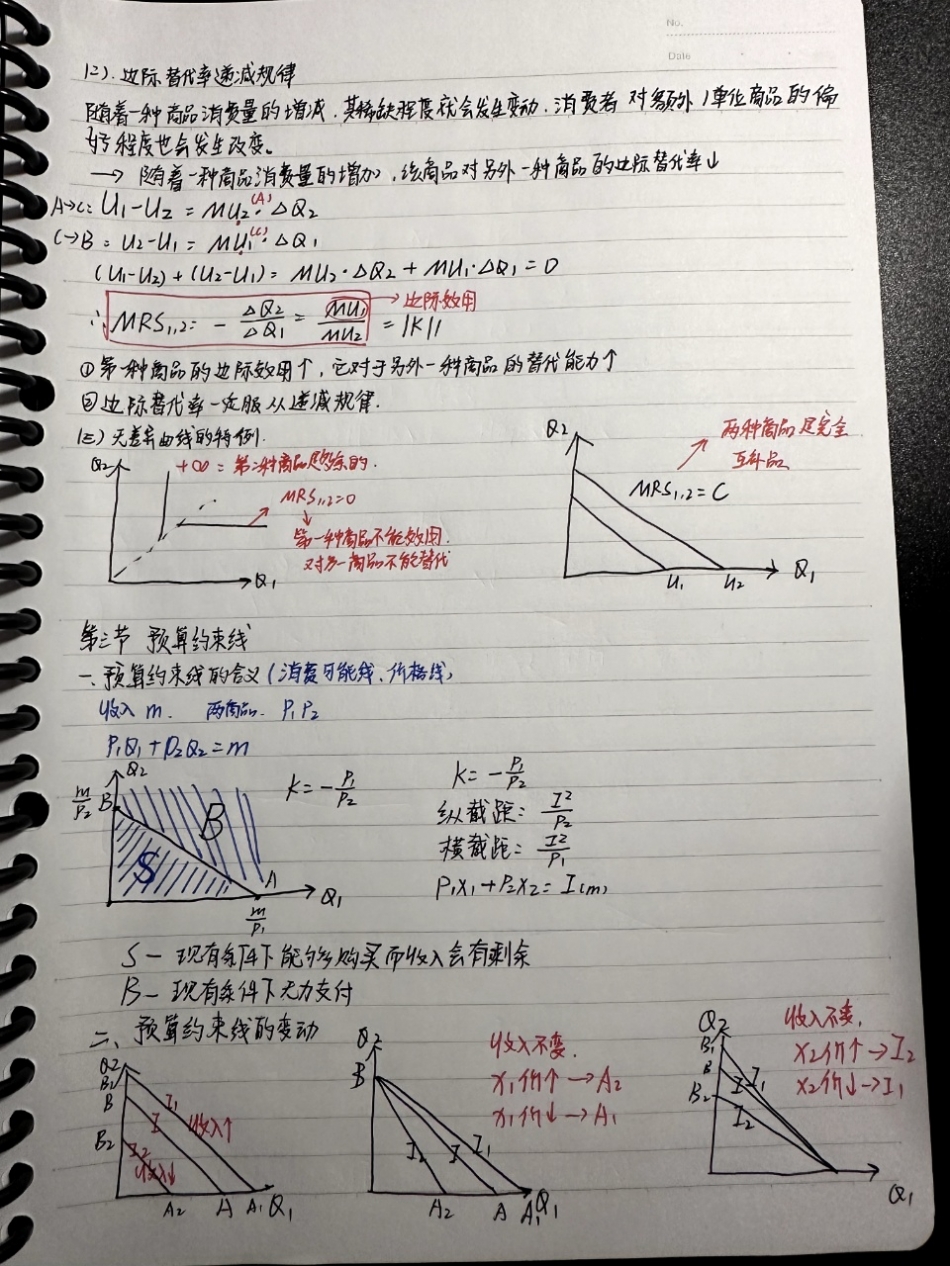 No.
Date
(二). 边际替代率递减规律
随着一种商品消费量的增减, 其稀缺程度就会发生变动, 消费者对额外1单位商品的偏
好程度也会发生改变。
→ 随着一种商品消费量的增加, 该商品对另外一种商品的边际替代率↓
A→C: U₁-U₂ = MU₂(A)·△Q₂
C→B: U₂-U₁ = MU₁(C)·△Q₁
(U₁-U₂)+(U₂-U₁)= MU₂·△Q₂+MU₁·△Q₁=0
∴ MRS₁,₂= -△Q₂/△Q₁ = MU₁/MU₂ = |K| →边际效用
①第一种商品的边际效用↑, 它对于另外一种商品的替代能力↑
②边际替代率一定服从递减规律.
(三) 无差异曲线的特例.
Q₂ +∞: 第二种商品是多余的.
MRS₁,₂=0
↓
第一种商品不能效用.
对另一商品不能替代
Q₁
Q₂ 两种商品是完全
互补品
MRS₁,₂=C
U₁ U₂ Q₁
第三节 预算约束线
一、预算约束线的含义(消费可能线、价格线)
收入 m. 两商品. P₁ P₂
P₁Q₁+P₂Q₂=m
Q₂ m/P₂ B B S A Q₁ m/P₁
K=-P₁/P₂
K=-P₁/P₂
纵截距: I²/P₂
横截距: I²/P₁
P₁X₁+P₂X₂=I(m)
S— 现有条件下能够购买而收入会有剩余
B— 现有条件下无力支付
二、预算约束线的变动
Q₂ B₁ B B₂ I₁ I I₂ 收入↑ 收入↓ A₂ A A₁ Q₁
Q₂ B I₂ I I₁ A₂ A A₁ Q₁
收入不变.
X₁价↑→A₂
X₁价↓→A₁
Q₂ B₁ B B₂ I I₁ I₂ Q₁
收入不变,
X₂价↑→I₂
X₂价↓→I₁